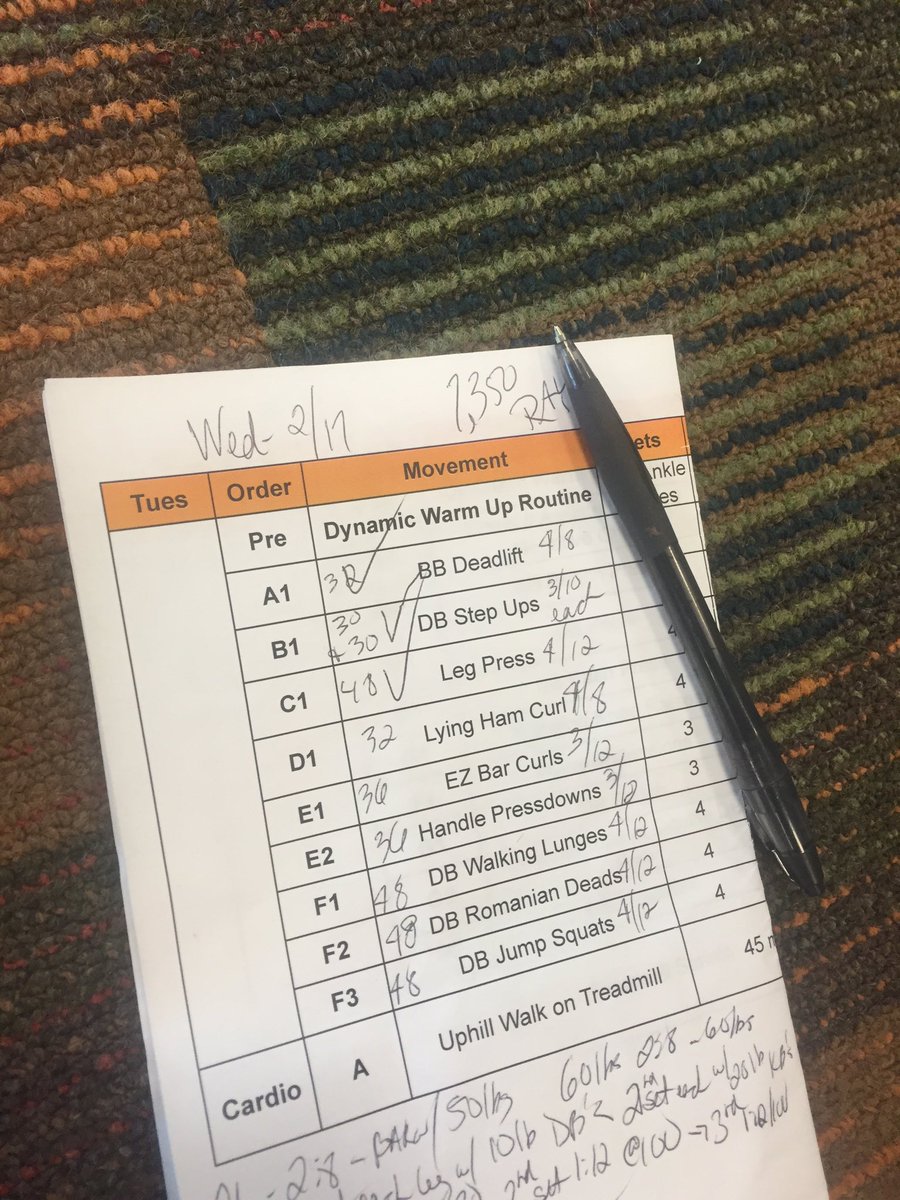 Wed- 2/17 7,350
RAY
Tues Order Movement ets
Pre Dynamic Warm Up Routine nkle
es
A1 32 BB Deadlift 4/8
B1 30 + 30 DB Step Ups 3/10 each
C1 48 Leg Press 4/12 4
D1 32 Lying Ham Curl 4/8 4
E1 36 EZ Bar Curls 3/12 3
E2 36 Handle Pressdowns 3/12 3
F1 48 DB Walking Lunges 4/12 4
F2 48 DB Romanian Deads 4/12 4
F3 48 DB Jump Squats 4/12 4
Cardio A Uphill Walk on Treadmill 45
2:8 - BAR w/ 50lbs 60lbs 2:8 - 60lbs
each leg w/ 10lb DB's 2nd set each w/ 20lb KB's
2nd set 1:12 @100 → 3rd